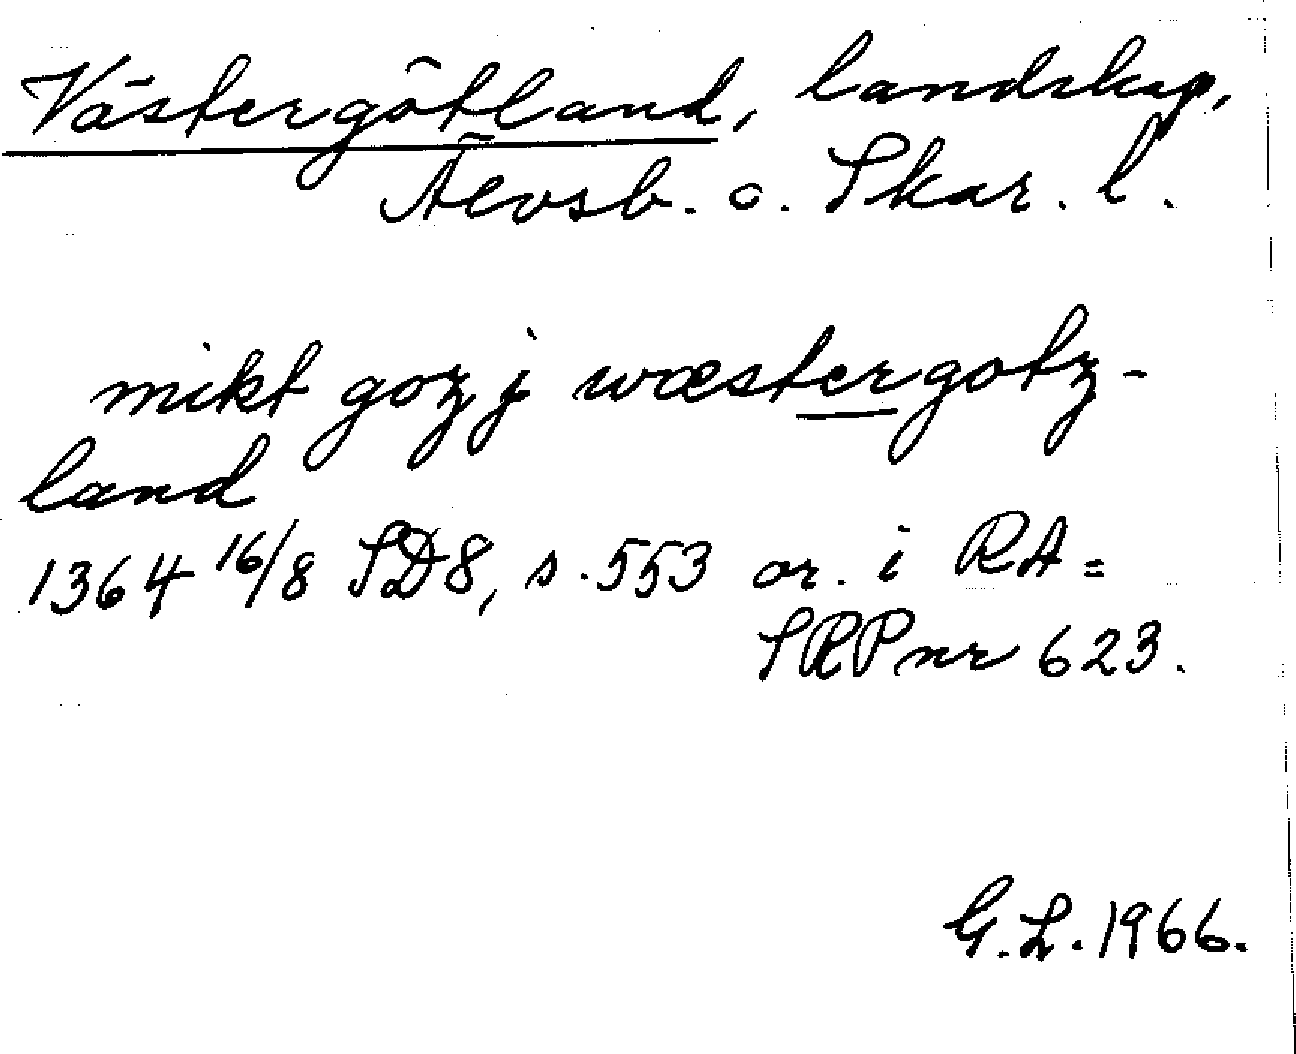 Västergötland, landskap,
Älvsb. o. Skar. l.
mikt goz j wæstergotz-
land
1364 16/8 SD8, s. 553 or. i RA =
SRP nr 623.
G. L. 1966.